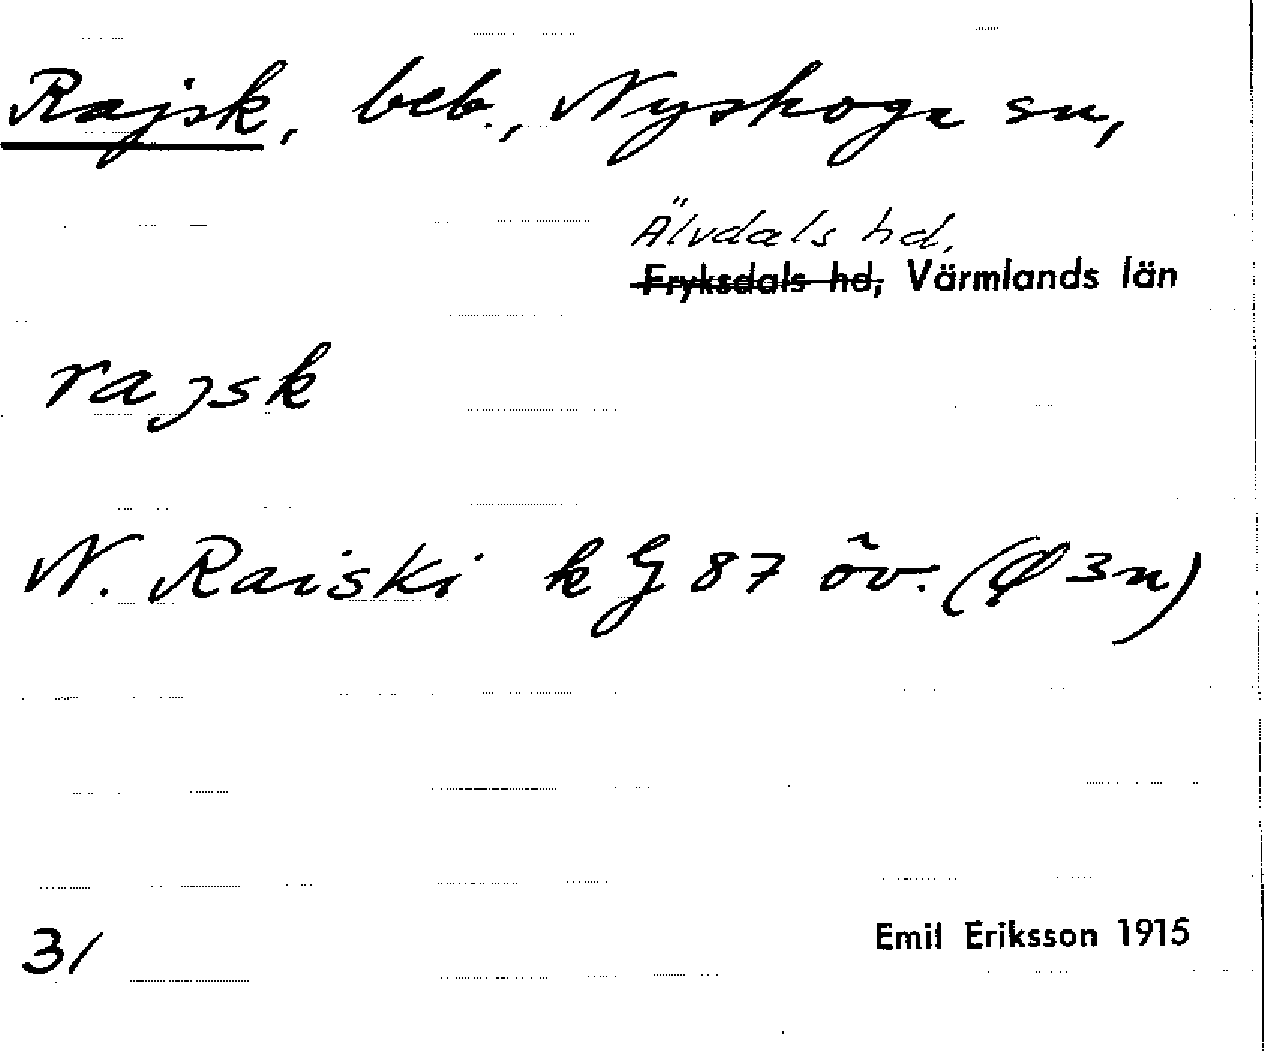 Rajsk, beb., Nyskoga sn,
Älvdals hd,
Fryksdals hd, Värmlands län
rajsk
N. Raiski k G 87 öv. (Ø 3 n)
31
Emil Eriksson 1915